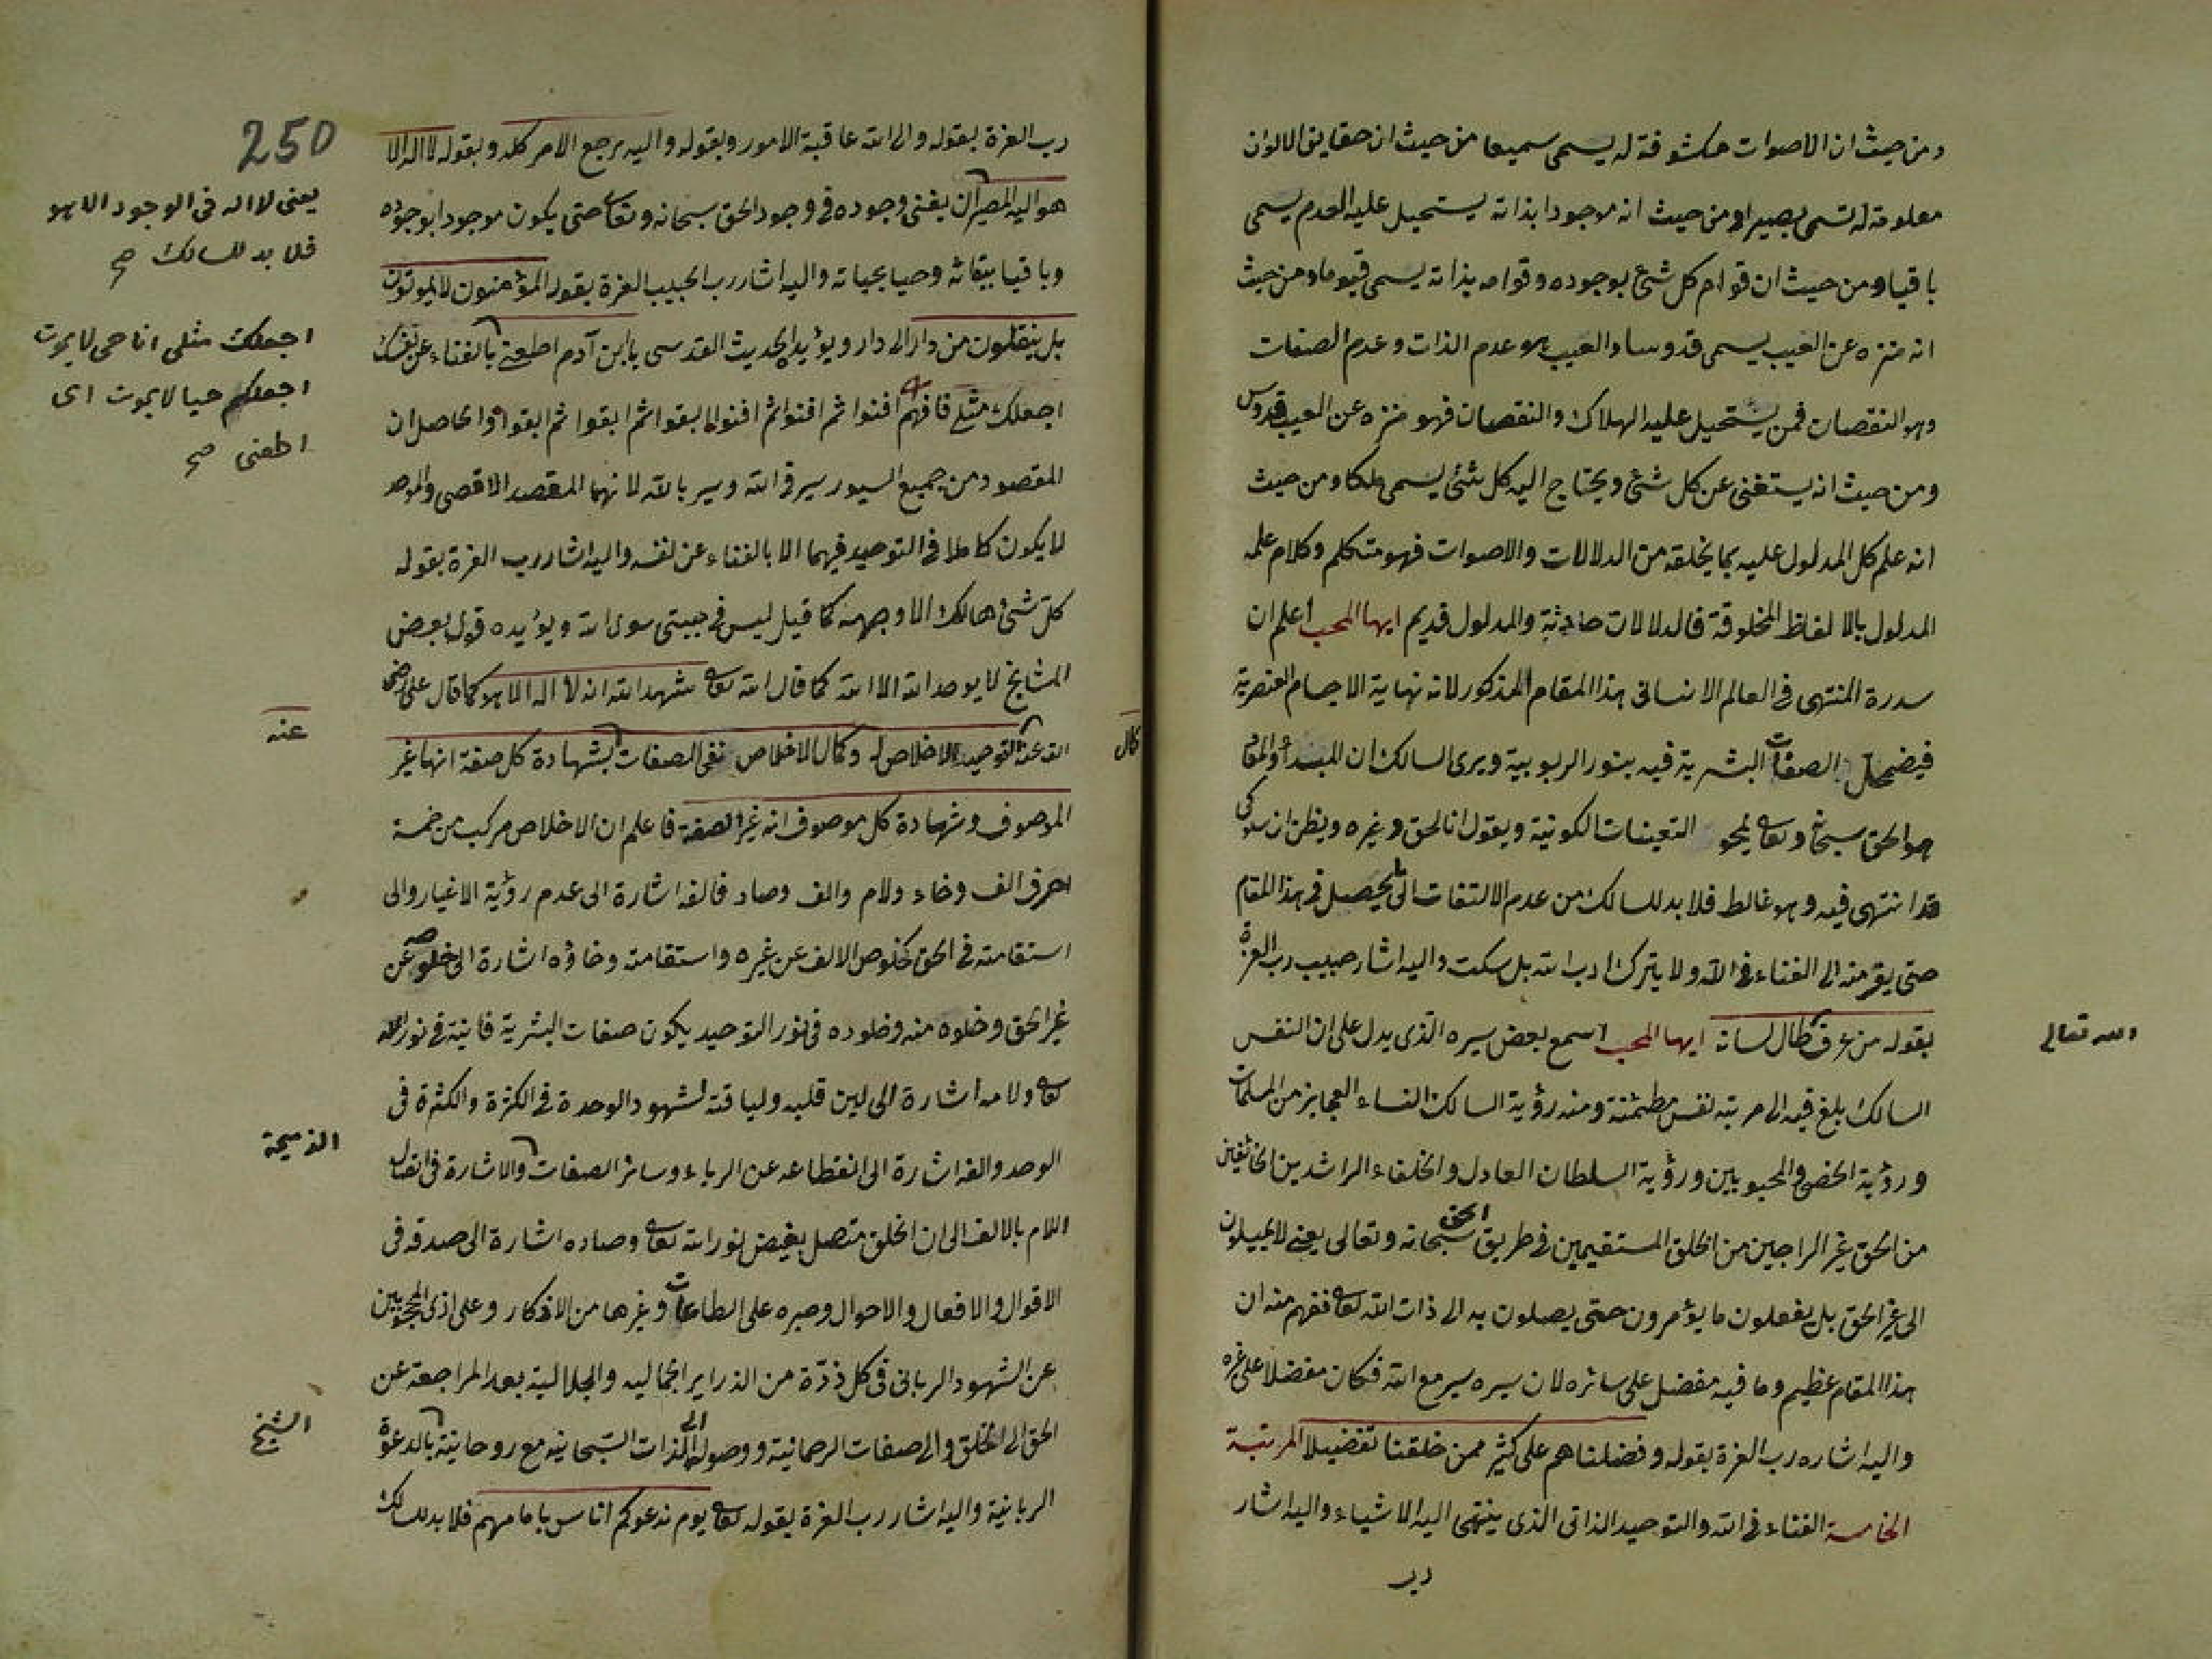 ومن حيث ان الاصوات مكشوفة له يسمى سميعا من حيث ان حقايق الالوان
معلومة له تسمى بصيرا ومن حيث انه موجود بذاته يستحيل عليه العدم يسمى
باقيا ومن حيث ان قوام كل شئ بوجوده وقوامه بذاته يسمى قيوما ومن حيث
انه منزه عن العيب يسمى قدوسا والعيب هو عدم الذات وعدم الصفات
وهو النقصان فمن يستحيل عليه الهلاك والنقصان فهو منزه عن العيب قدوس
ومن حيث انه يستغنى عن كل شئ ويحتاج اليه كل شئ يسمى ملكا ومن حيث
انه علم كل المدلول عليه بما يخلقه من الدلالات والاصوات فهو متكلم وكلام علمه
المدلول بالالفاظ المخلوقة فالدلالات حادثة والمدلول قديم ايها المحب اعلم ان
سدرة المنتهى فى العالم الانسانى هذا المقام المذكور لانه نهاية الاجسام العنصرية
فيضمحل الصفات البشرية فيه بنور الربوبية ويرى السالك ان المبدأ والمعاد
هو الحق سبحانه وتعالى لمحو التعينات الكونية ويقول انا الحق وغيره ويظن ان سلوكى
قد انتهى فيه وهو غالط فلا بد للسالك من عدم الالتفات الى ما يحصل فى هذا المقام
حتى يفر منه الى الفناء فى الله ولا يترك ادب الله بل سكت واليه اشار حبيب رب العزة
بقوله من عرف الله تعالى طال لسانه ايها المحب اسمع بعض سيره الذى يدل على ان النفس
السالك بلغ فيه الى مرتبه نفس مطمئنة ومنه رؤية السالك النساء العجايز من المسلمات
ورؤية الخضر والمحبوبين ورؤية السلطان العادل والخلفاء الراشدين الخائفين
من الحق غير الراجين من الخلق المستقيمين فى طريق الحق سبحانه وتعالى يعنى لا يميلون
الى غير الحق بل يفعلون ما يؤمرون حتى يصلون به الى ذات الله تعالى ففهم منه ان
هذا المقام عظيم وما فيه مفضل على سائره لان سيره سير مع الله فكان مفضلا على غيره
واليه اشاره رب العزة بقوله وفضلناهم على كثير ممن خلقنا تفضيلا المرتبة
الخامسة الفناء فى الله والتوحيد الذاتى الذى ينتهى اليه الاشياء واليه اشار
رب
250
رب العزة بقوله والى الله عاقبة الامور وبقوله واليه يرجع الامر كله وبقوله لا اله الا
هو اليه المصير ان يفنى وجوده فى وجود الحق سبحانه وتعالى حتى يكون موجودا بوجوده
يعنى لا اله فى الوجود الا هو
فلا بد للسالك صح
وباقيا ببقائه وحيا بحياته واليه اشار رب الحبيب العزة بقوله المؤمنون لا يموتون
بل ينتقلون من دار الى دار ويؤيده الحديث القدسى يا ابن آدم اطعنى بالفناء عن نفسك
اجعلك مثلى انا حى لا يموت
اجعلكم حيا لا يموت اى
اطعنى صح
اجعلك مثلى فافهم افنوا ثم افنوا ثم افنوا ابقوا ثم ابقوا ثم ابقوا والحاصل ان
المقصود من جميع السيور سير فى الله وسير بالله لانهما المقصد الاقصى والموحد
لا يكون كاملا فى التوحيد فيهما الا بالفناء عن نفسه واليه اشار رب العزة بقوله
كل شئ هالك الا وجهه كما قيل ليس فى جبتى سوى الله ويؤيده قول بعض
المشايخ لا يوحد الله الا الله كما قال الله تعالى شهد الله انه لا اله الا هو كما قال على رضى
الله عنه كمال التوحيد الاخلاص له وكمال الاخلاص نفى الصفات لشهادة كل صفة انها غير
الموصوف وشهادة كل موصوف انه غير الصفة فاعلم ان الاخلاص مركب من خمسة
احرف الف وخاء ولام والف وصاد فالفه اشارة الى عدم رؤية الاغيار والى
استقامته فى الحق كخلوص الالف عن غيره واستقامته وخاؤه اشارة الى خلوصه عن
غير الحق وخلوه منه وخلوده فى نور التوحيد يكون صفات البشرية فانية فى نور الله
تعالى ولامه اشارة الى لين قلبه ولياقته لشهود الوحدة فى الكثرة والكثرة فى
الوحد والفه اشارة الى انقطاعه عن الرياء وسائر الصفات الذميمة والاشارة فى اتصال
اللام بالالف الى ان الخلق متصل بفيض نور الله تعالى وصاده اشارة الى صدقه فى
الاقوال والافعال والاحوال وصبره على الطاعات وغيرها من الاذكار وعلى اذى المحجوبين
عن الشهود الربانى فى كل ذرة من الذراير الجماليه والجلالية بعد المراجعة عن
الحق الى الخلق والى صفات الرحمانية ووصوله الى الذات السبحانيه مع روحانية الشيخ بالدعوة
الربانية واليه اشار رب العزة بقوله تعالى يوم ندعو كل اناس بامامهم فلا بد للسالك